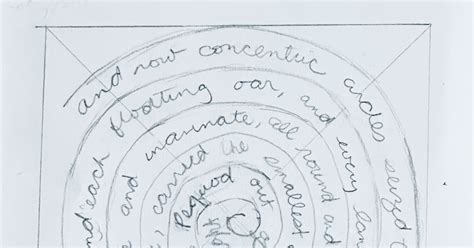 and now concentric circles seized
and each floating oar, and every lan
e and inanimate, all round and
, carried the smallest
Pequod out